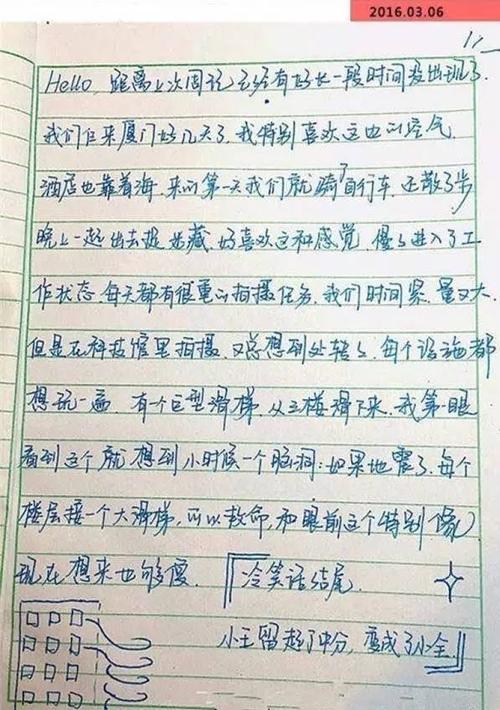 2016.03.06
Hello 距离上次周记已经有好长一段时间没出现了.
我们已来厦门好几天了.我特别喜欢这边的空气
酒店也靠着海.来的第一天我们就骑了自行车.还散了步
晚上一起出去捉迷藏.好喜欢这种感觉.慢慢进入了工
作状态.每天都有很重的拍摄任务.我们时间紧.量又大.
但是在科技馆里拍摄.又总想到处转转.每个设施都
想玩一遍.有个巨型滑梯.从三楼滑下来.我第一眼
看到这个就想到小时候一个脑洞:如果地震了.每个
楼层接一个大滑梯,可以救命,和眼前这个特别像!
现在想来也够傻.『冷笑话结尾.
小王留起了中分,变成了小全.』